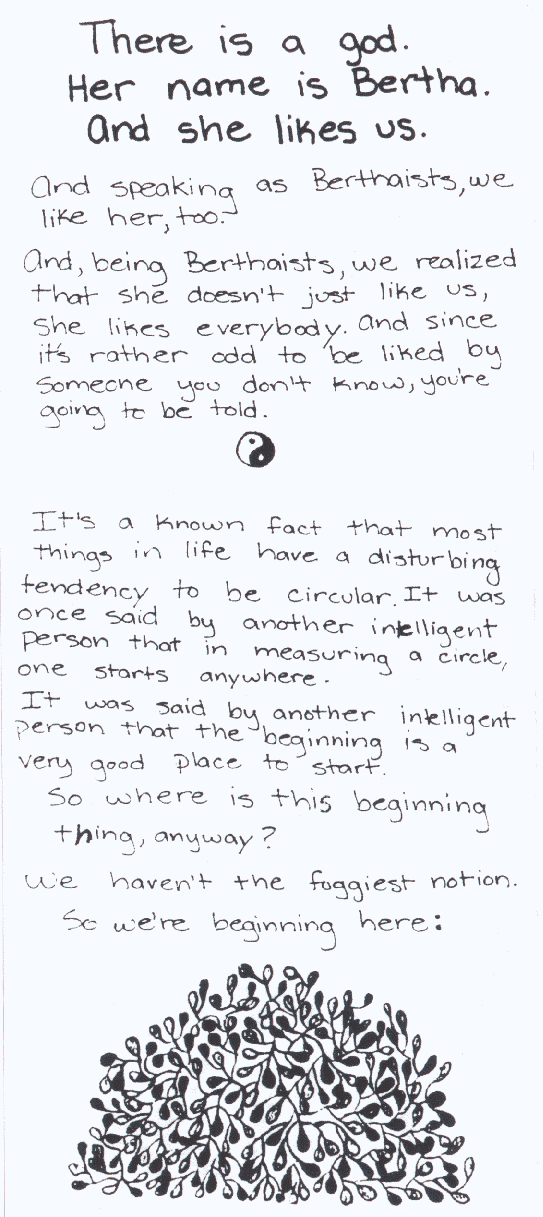 There is a god.
Her name is Bertha.
And she likes us.
And speaking as Berthaists, we
like her, too.
And, being Berthaists, we realized
that she doesn't just like us,
she likes everybody. And since
it's rather odd to be liked by
someone you don't know, you're
going to be told.
It's a known fact that most
things in life have a disturbing
tendency to be circular. It was
once said by another intelligent
person that in measuring a circle,
one starts anywhere.
It was said by another intelligent
person that the beginning is a
very good place to start.
So where is this beginning
thing, anyway?
We haven't the foggiest notion.
So we're beginning here: